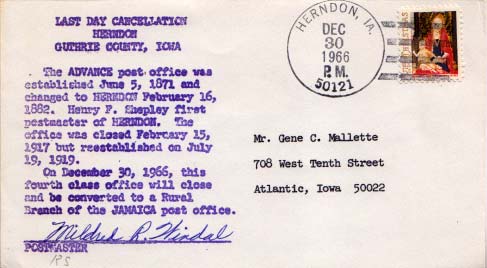 LAST DAY CANCELLATION
HERNDON
GUTHRIE COUNTY, IOWA
The ADVANCE post office was
established June 5, 1871 and
changed to HERNDON February 16,
1882. Henry F. Shepley first
postmaster of HERNDON. The
office was closed February 15,
1917 but reestablished on July
19, 1919.
On December 30, 1966, this
fourth class office will close
and be converted to a Rural
Branch of the JAMAICA post office.
Mildred R. Windal
POSTMASTER
HERNDON, IA.
DEC
30
1966
P.M.
50121
Mr. Gene C. Mallette
708 West Tenth Street
Atlantic, Iowa 50022